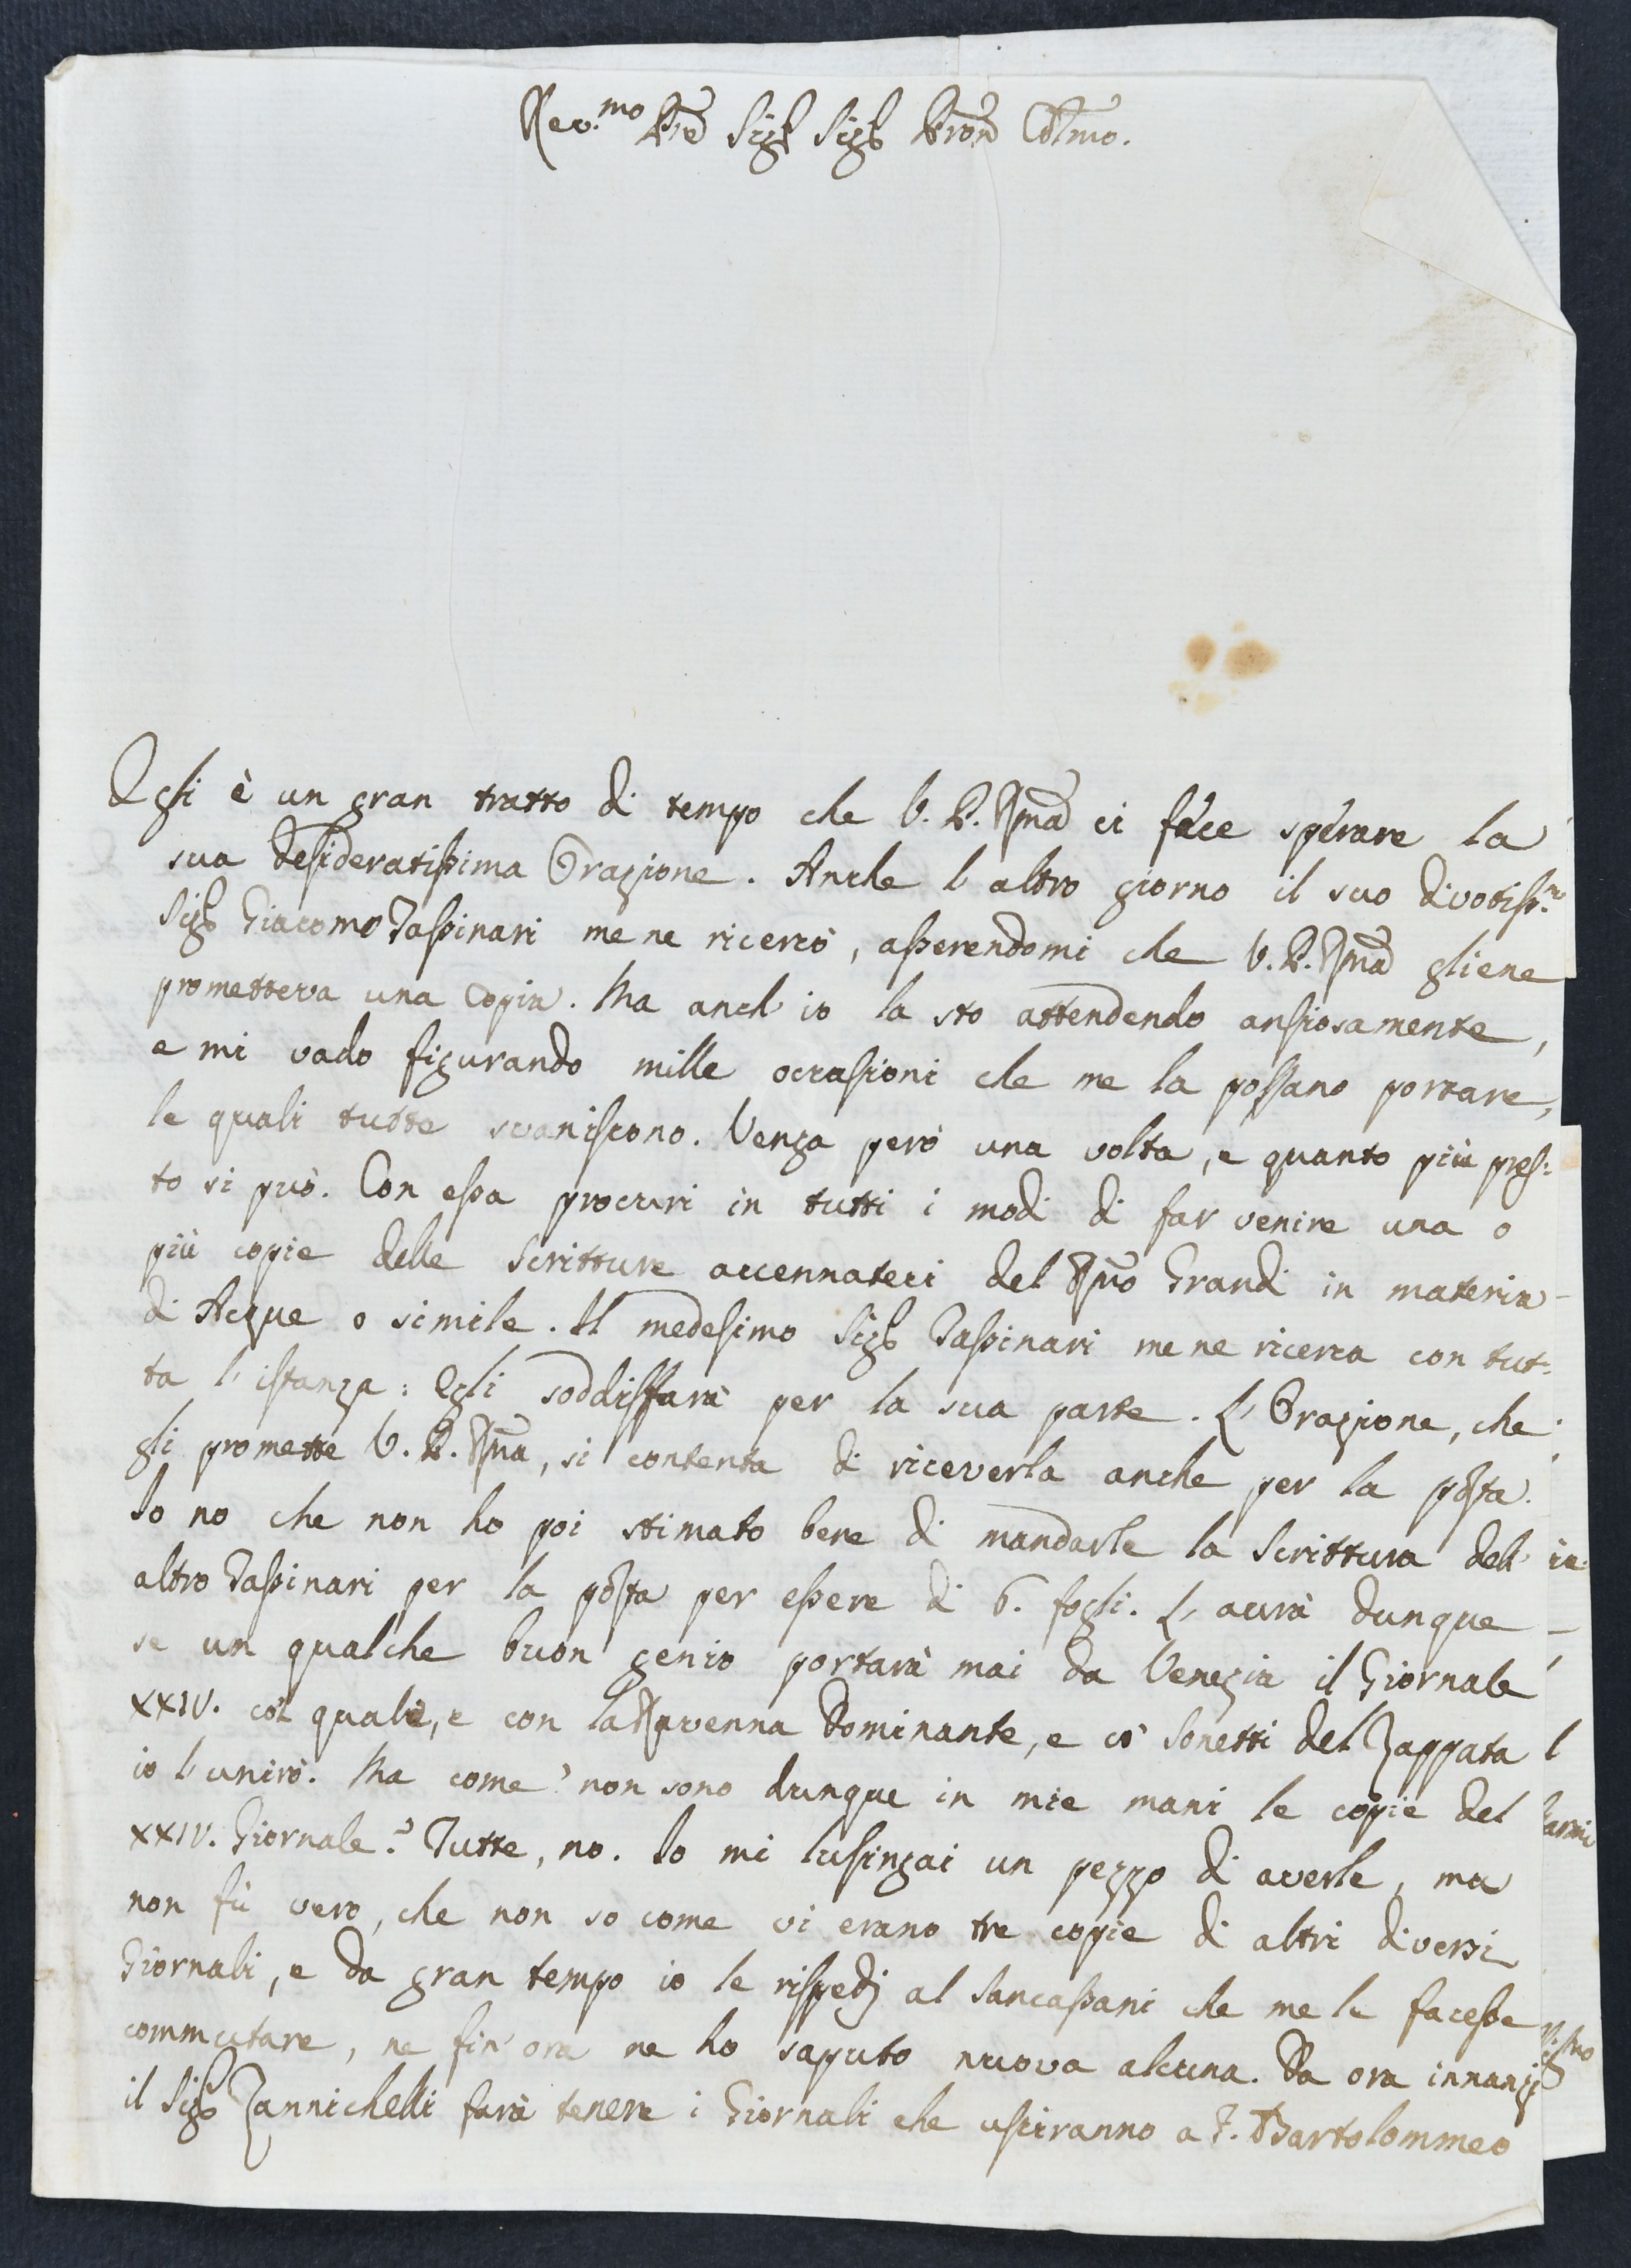 Rev.mo Pre Sigr Sigr Pron Colmo.
Egli è un gran tratto di tempo che V. P. Rma ci fece sperare la
sua desideratissima Orazione. Anche l'altro giorno il suo divotiss.mo
Sigr Giacomo Tassinari me ne ricercò, asserendomi che V. P. Rma gliene
prometteva una copia. Ma anch'io la sto attendendo ansiosamente,
e mi vado figurando mille occasioni che me la possano portare,
le quali tutte svaniscono. Venga però una volta, e quanto più pres:
to si può. Con essa procuri in tutti i modi di far venire una o
più copie delle scritture accennateci del Rmo Grandi in materia
di Acque o simile. Il medesimo Sigr Tassinari me ne ricerca con tut:
ta l'istanza: Egli soddisfarà per la sua parte. L'Orazione, che
gli promette V. P. Rma, si contenta di riceverla anche per la posta.
Io no che non ho poi stimato bene di mandarle la Scrittura dell'
altro Tassinari per la posta per essere di 6. fogli. L'avrà dunque
se un qualche buon genio portarà mai da Venezia il Giornale
XXIV. col quale, e con la Ravenna Dominante, e co' Sonetti del Zappata
io l'unirò. Ma come? non sono dunque in mie mani le copie del
XXIV. Giornale? Tutte, no. Io mi lusingai un pezzo di averle, ma
non fù vero, che non so come vi erano tre copie di altri diversi
Giornali, e da gran tempo io le rispedj al Sancassani che me le facesse
commutare, ne fin'ora ne ho saputo nuova alcuna. Da ora innanzi
il Sigr Zannichelli farà tenere i Giornali che usciranno a F. Bartolommeo